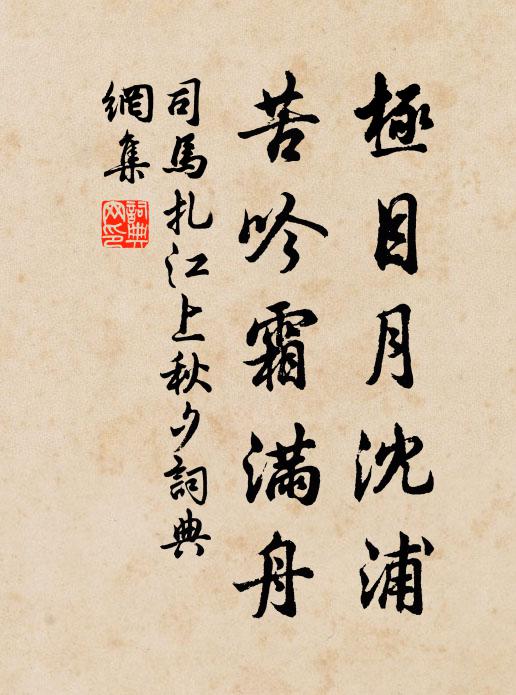 極目月沈浦
苦吟霜滿舟
司馬扎江上秋夕詞典
網集
詞典
文印